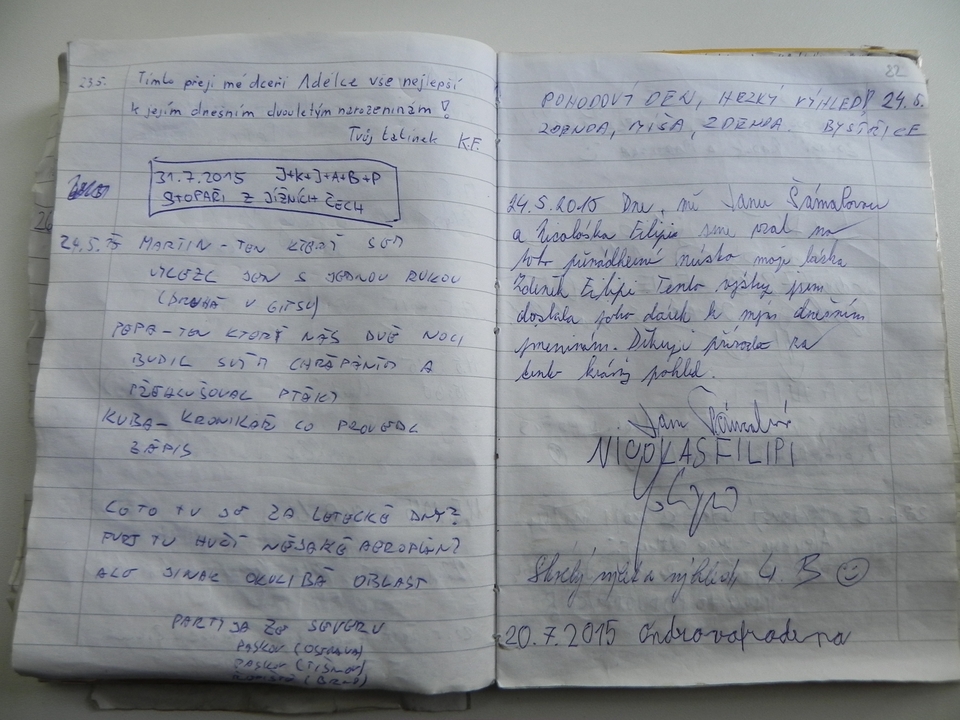 23.5. Tímto přeji mé dceři Adélce vše nejlepší
k jejím dnešním dvouletým narozeninám!
Tvůj tatínek K.F.
31.7.2015 J+K+J+A+B+P
STOPAŘI Z JIŽNÍCH ČECH
24.5.15 MARTIN - TEN KTERÝ SEM
VYLEZL JEN S JEDNOU RUKOU
(DRUHÁ V GIPSU)
PAPA - TEN KTERÝ NÁS DVĚ NOCI
BUDIL SVÝM CHRÁPÁNÍM A
PŘEHLUŠOVAL PTÁKY
KUBA - KRONIKÁŘ CO PROVEDL
ZÁPIS
CO TO TU JE ZA LETECKÉ DNY?
FURT TU HUČÍ NĚJAKÉ AEROPLÁN?
ALE JINAK OBLAST
PARTYJA ZE SEVERU
PASKOV (OSTRAVA)
(TIŠNOV)
(BRNO)
22
POHODOVÝ DEN, HEZKÝ VÝHLED! 24.5.
ZDENDA, MÍŠA, ZDENDA. BYSTŘICE
24.5.2015 Dne, mě Janu Šámalovou
a Nicoláska Filipi sme vzal na
toto přenádherné místo moje láska
Zdeněk Filipi Tento výšky jsem
dostala jako dárek k mým dnešním
jmeninám. Děkuji příroda za
tento krásný pohled.
Jana Šámalová
NICOLAS FILIPI
Skvělý výlet a výhled 4. B ☺
20.7.2015